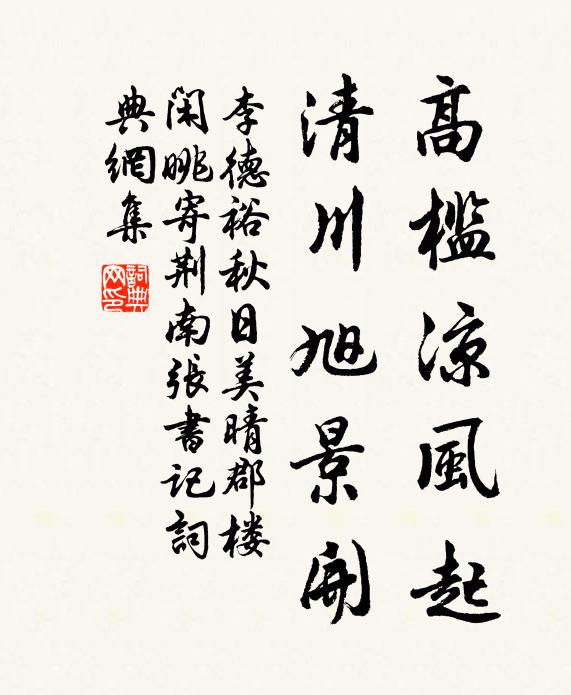 高檻涼風起
清川旭景開
李德裕秋日美晴郡楼
閑眺寄荆南張書記詞
典網集
詞典网印